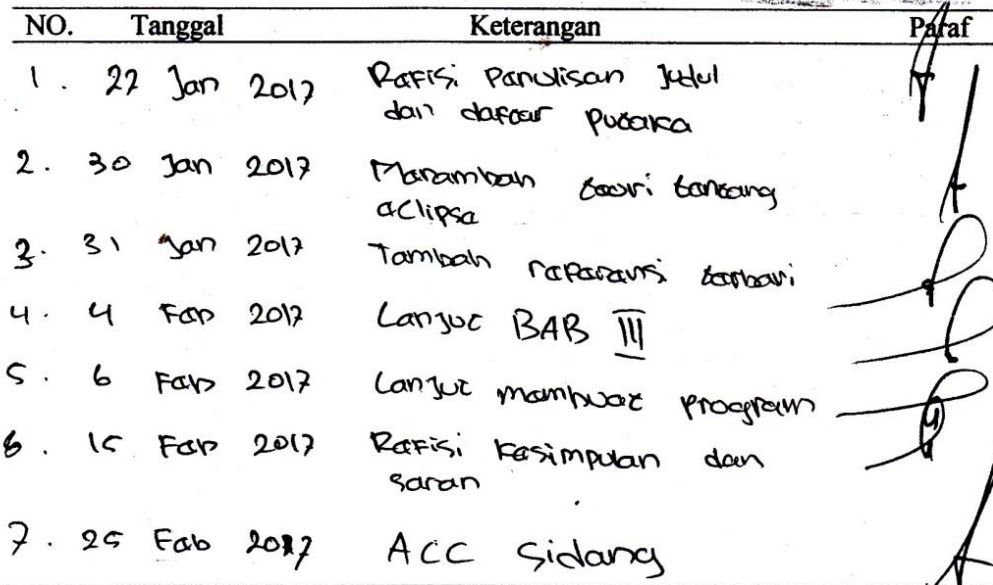 NO. Tanggal Keterangan Paraf
1. 22 Jan 2017 Refisi Penulisan Judul
dan daftar pustaka
2. 30 Jan 2017 Menambah teori tentang
eclipse
3. 31 Jan 2017 Tambah referensi terbaru
4. 4 Feb 2017 Lanjut BAB III
5. 6 Feb 2017 Lanjut membuat program
6. 15 Feb 2017 Refisi Kesimpulan dan
saran
7. 25 Feb 2017 ACC Sidang